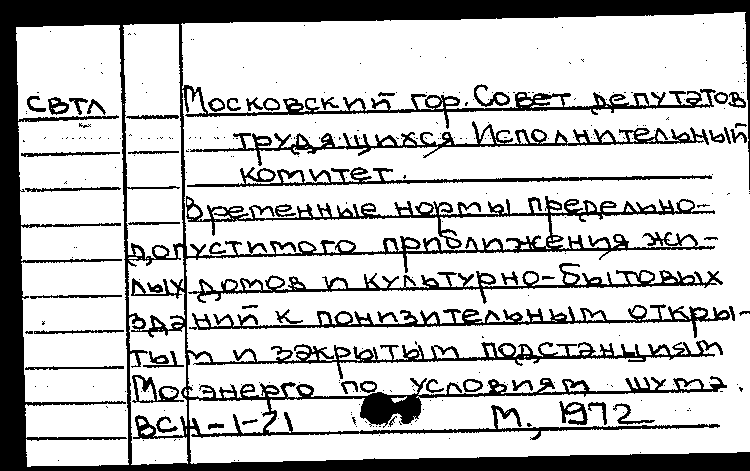 СВТЛ Московский гор. Совет депутатов
трудящихся Исполнительный
комитет.
Временные нормы предельно-
допустимого приближения жи-
лых домов и культурно-бытовых
зданий к понизительным откры-
тым и закрытым подстанциям
Мосэнерго по условиям шума.
ВСН-1-71 М., 1972